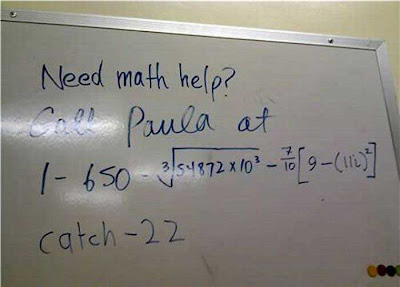 Need math help?
Call Paula at
1-650-∛54872×10³ - 7/10[9-(11i)²]
catch-22